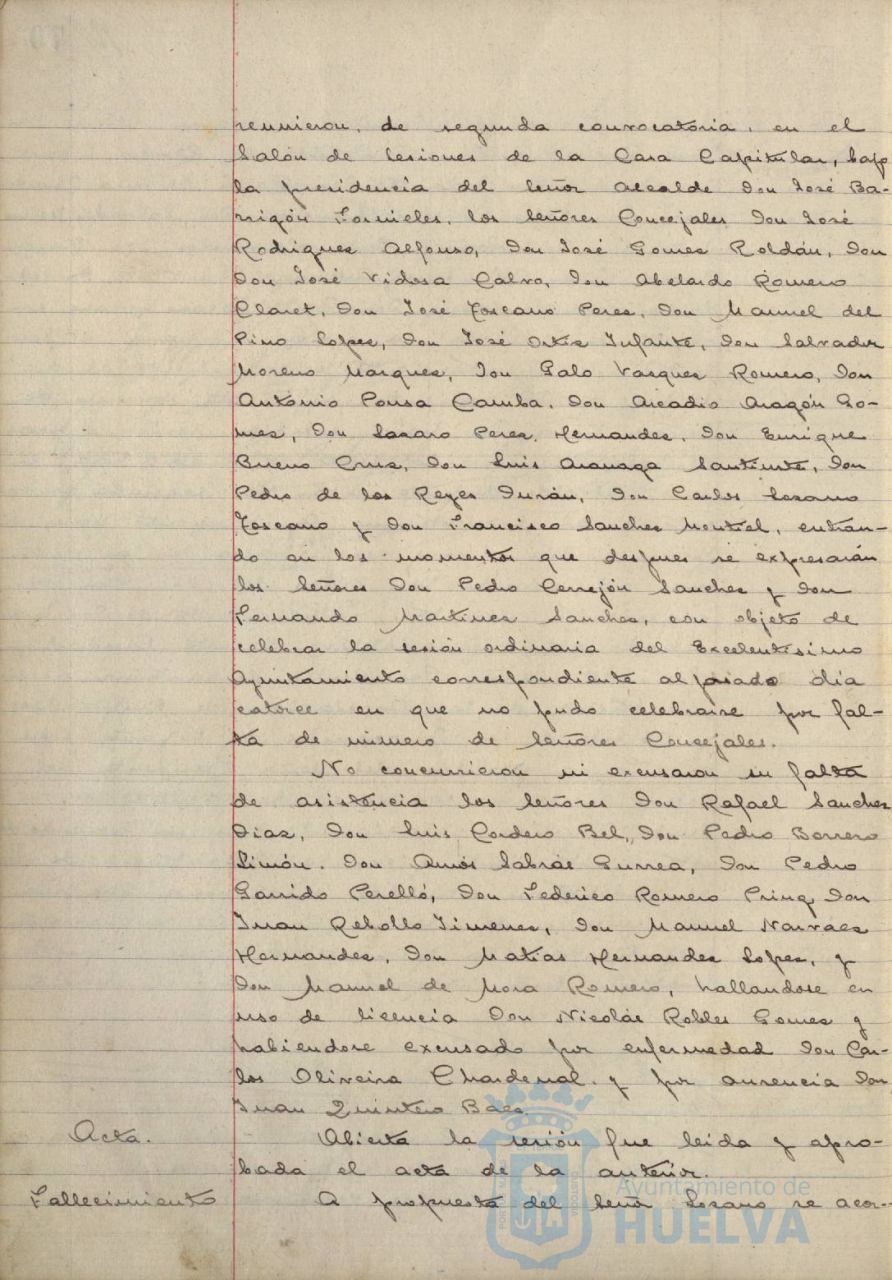 reunieron, de segunda convocatoria, en el
Salón de Sesiones de la Casa Capitular, bajo
la presidencia del Señor Alcalde Don José Ba-
rrigón Fornieles, los Señores Concejales Don José
Rodrigues Alfonso, Don José Gomes Roldán, Don
Don José Vidosa Calvo, Don Abelardo Romero
Claret, Don José Toscano Peres, Don Manuel del
Pino Lopes, Don José Ortis Infante, Don Salvador
Moreno Marques, Don Galo Vasques Romero, Don
Antonio Pousa Camba, Don Arcadio Aragón Go-
mes, Don Lasaro Peres Hernandes, Don Enrique
Bueno Crus, Don Luis Aranaga Santiuste, Don
Pedro de los Reyes Durán, Don Carlos Losano
Toscano y Don Francisco Sanches Montiel, entran-
do en los momentos que despues se expresarán
los Señores Don Pedro Cerrejón Sanches y Don
Fernando Martines Sanches, con objeto de
celebrar la sesión ordinaria del Excelentisimo
Ayuntamiento correspondiente al pasado día
catorce en que no pudo celebrarse por fal-
ta de número de Señores Concejales.
No concurrieron ni excusaron su falta
de asistencia los Señores Don Rafael Sanches
Dias, Don Luis Cordero Bel, Don Pedro Borrero
Limón, Don Amós Sabrás Gurrea, Don Pedro
Garrido Perelló, Don Federico Romero Don
Juan Rebollo Jimenes, Don Manuel Narvaes
Hernandes, Don Matías Hernandes Lopes, y
Don Manuel de Mora Romero, hallandose en
uso de licencia Don Nicolás Robles Gomes y
habiendose excusado por enfermedad Don Car-
los Oliveira Chardenal y por ausencia Don
Juan Quintero Baes.
Acta. Abierta la sesión fue leida y apro-
bada el acta de la anterior.
Fallecimiento A propuesta del Señor Losano se acor-
Ayuntamiento de
HUELVA